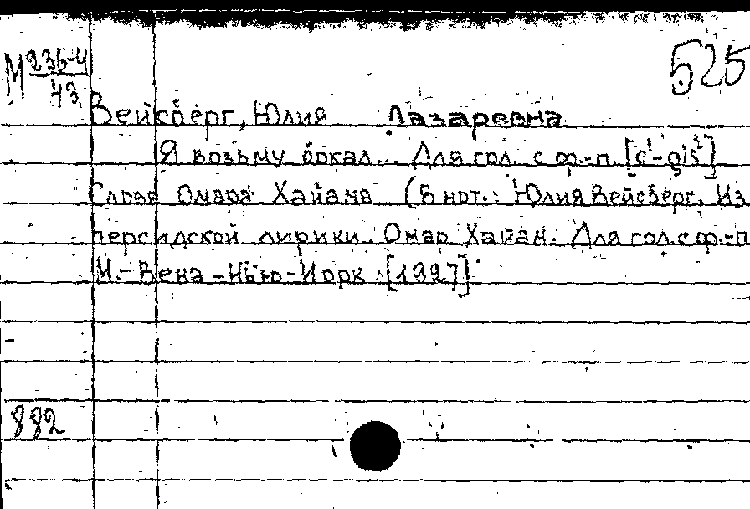 М 236-4
43
525
Вейсберг, Юлия Лазаревна
Я возьму бокал... Для гол. с ф.-п. [c¹-gis²]
Слова Омара Хайама (В нот.: Юлия Вейсберг. Из
персидской лирики. Омар Хайам. Для гол. с ф.-п.
М.-Вена-Нью-Йорк [1927].
882